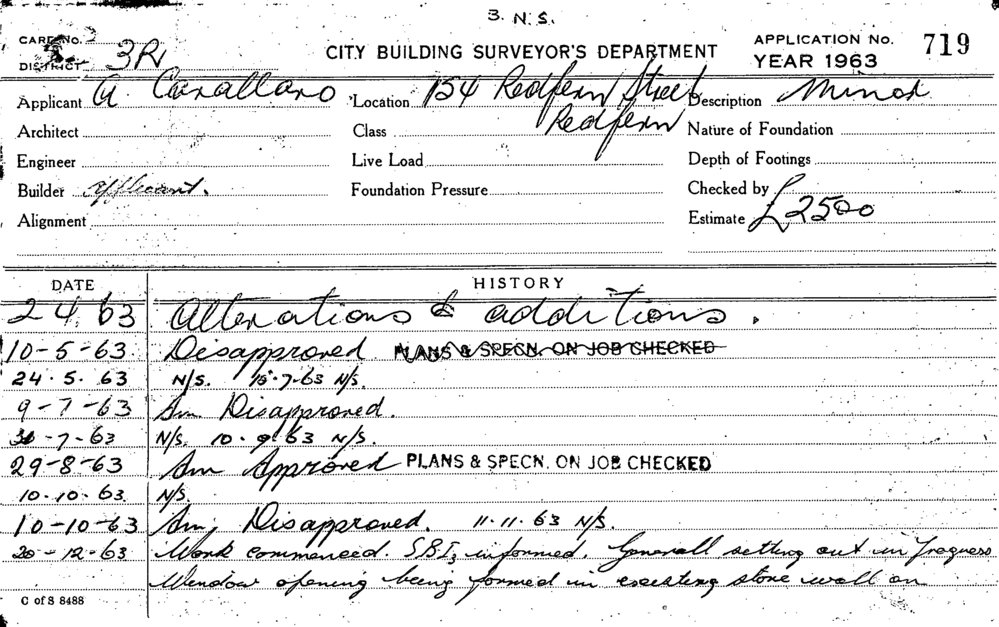 3. N.S.
CARD No.
DISTRICT 3R
CITY BUILDING SURVEYOR'S DEPARTMENT
APPLICATION No. 719
YEAR 1963
Applicant A. Cavallaro Location 154 Redfern Street Description Minor
Redfern
Architect Class Nature of Foundation
Engineer Live Load Depth of Footings
Builder applicant. Foundation Pressure Checked by
Alignment Estimate £2500
DATE HISTORY
2 4 63 Alterations & additions.
10-5-63 Disapproved PLANS & SPECN. ON JOB CHECKED
24.5.63 N/S. 15.7.63 N/S.
9-7-63 Am Disapproved.
30-7-63 N/S. 10.9.63 N/S.
29-8-63 Am Approved PLANS & SPECN. ON JOB CHECKED
10.10.63 N/S.
10-10-63 Am, Disapproved. 11.11.63 N/S.
20-12-63 Work commenced. S.B.I. informed. Generall setting out in progress
Window opening being formed in existing stone wall on
C of S 8488